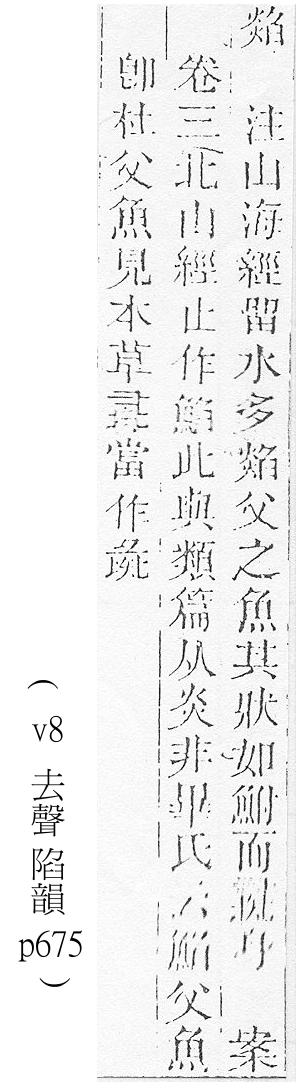 燄 注山海經畱水多燄父之魚其狀如鮒而身 案
卷三北山經止作䱤此與類篇从炎非畢氏云䱤父魚
卽杜父魚見本草當作彘
(v8 去聲 陷韻 p675)